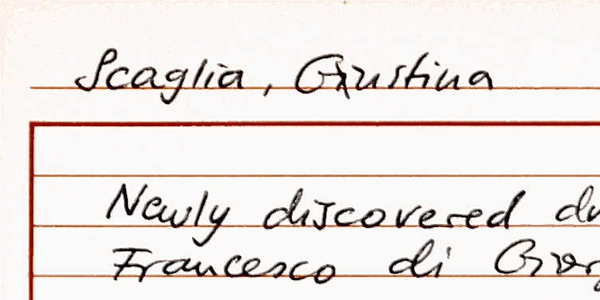 Scaglia, Giustina
Newly discovered
Francesco di